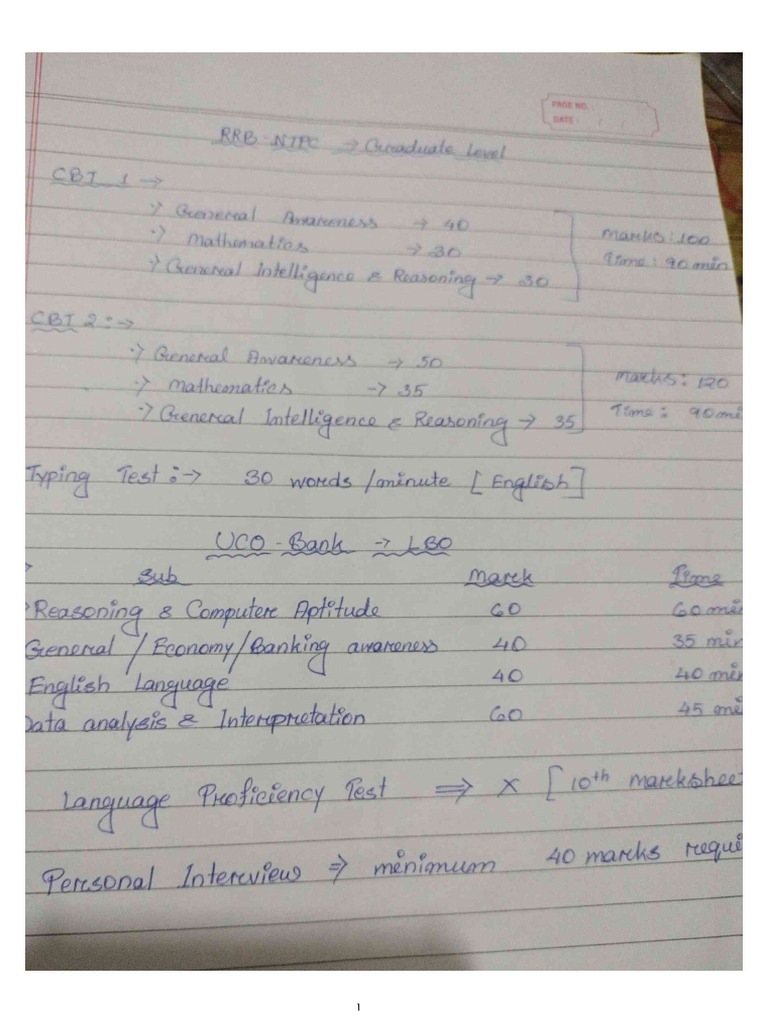 PAGE NO. :
DATE : / /
RRB-NTPC → Graduate Level
CBT 1 →
·> General Awareness → 40
·> Mathematics → 30
·> General Intelligence & Reasoning → 30
Marks: 100
Time: 90 min
CBT 2 :→
·> General Awareness → 50
·> Mathematics → 35
·> General Intelligence & Reasoning → 35
Marks: 120
Time: 90 mi
Typing Test :→ 30 words/minute [English]
UCO-Bank → LBO
Sub Mark Time
Reasoning & Computer Aptitude 60 60 min
General/Economy/Banking awareness 40 35 min
English Language 40 40 min
Data analysis & Interpretation 60 45 min
Language Proficiency Test ⇒ × [10th markshee
Personal Interview ⇒ minimum 40 marks requi
1